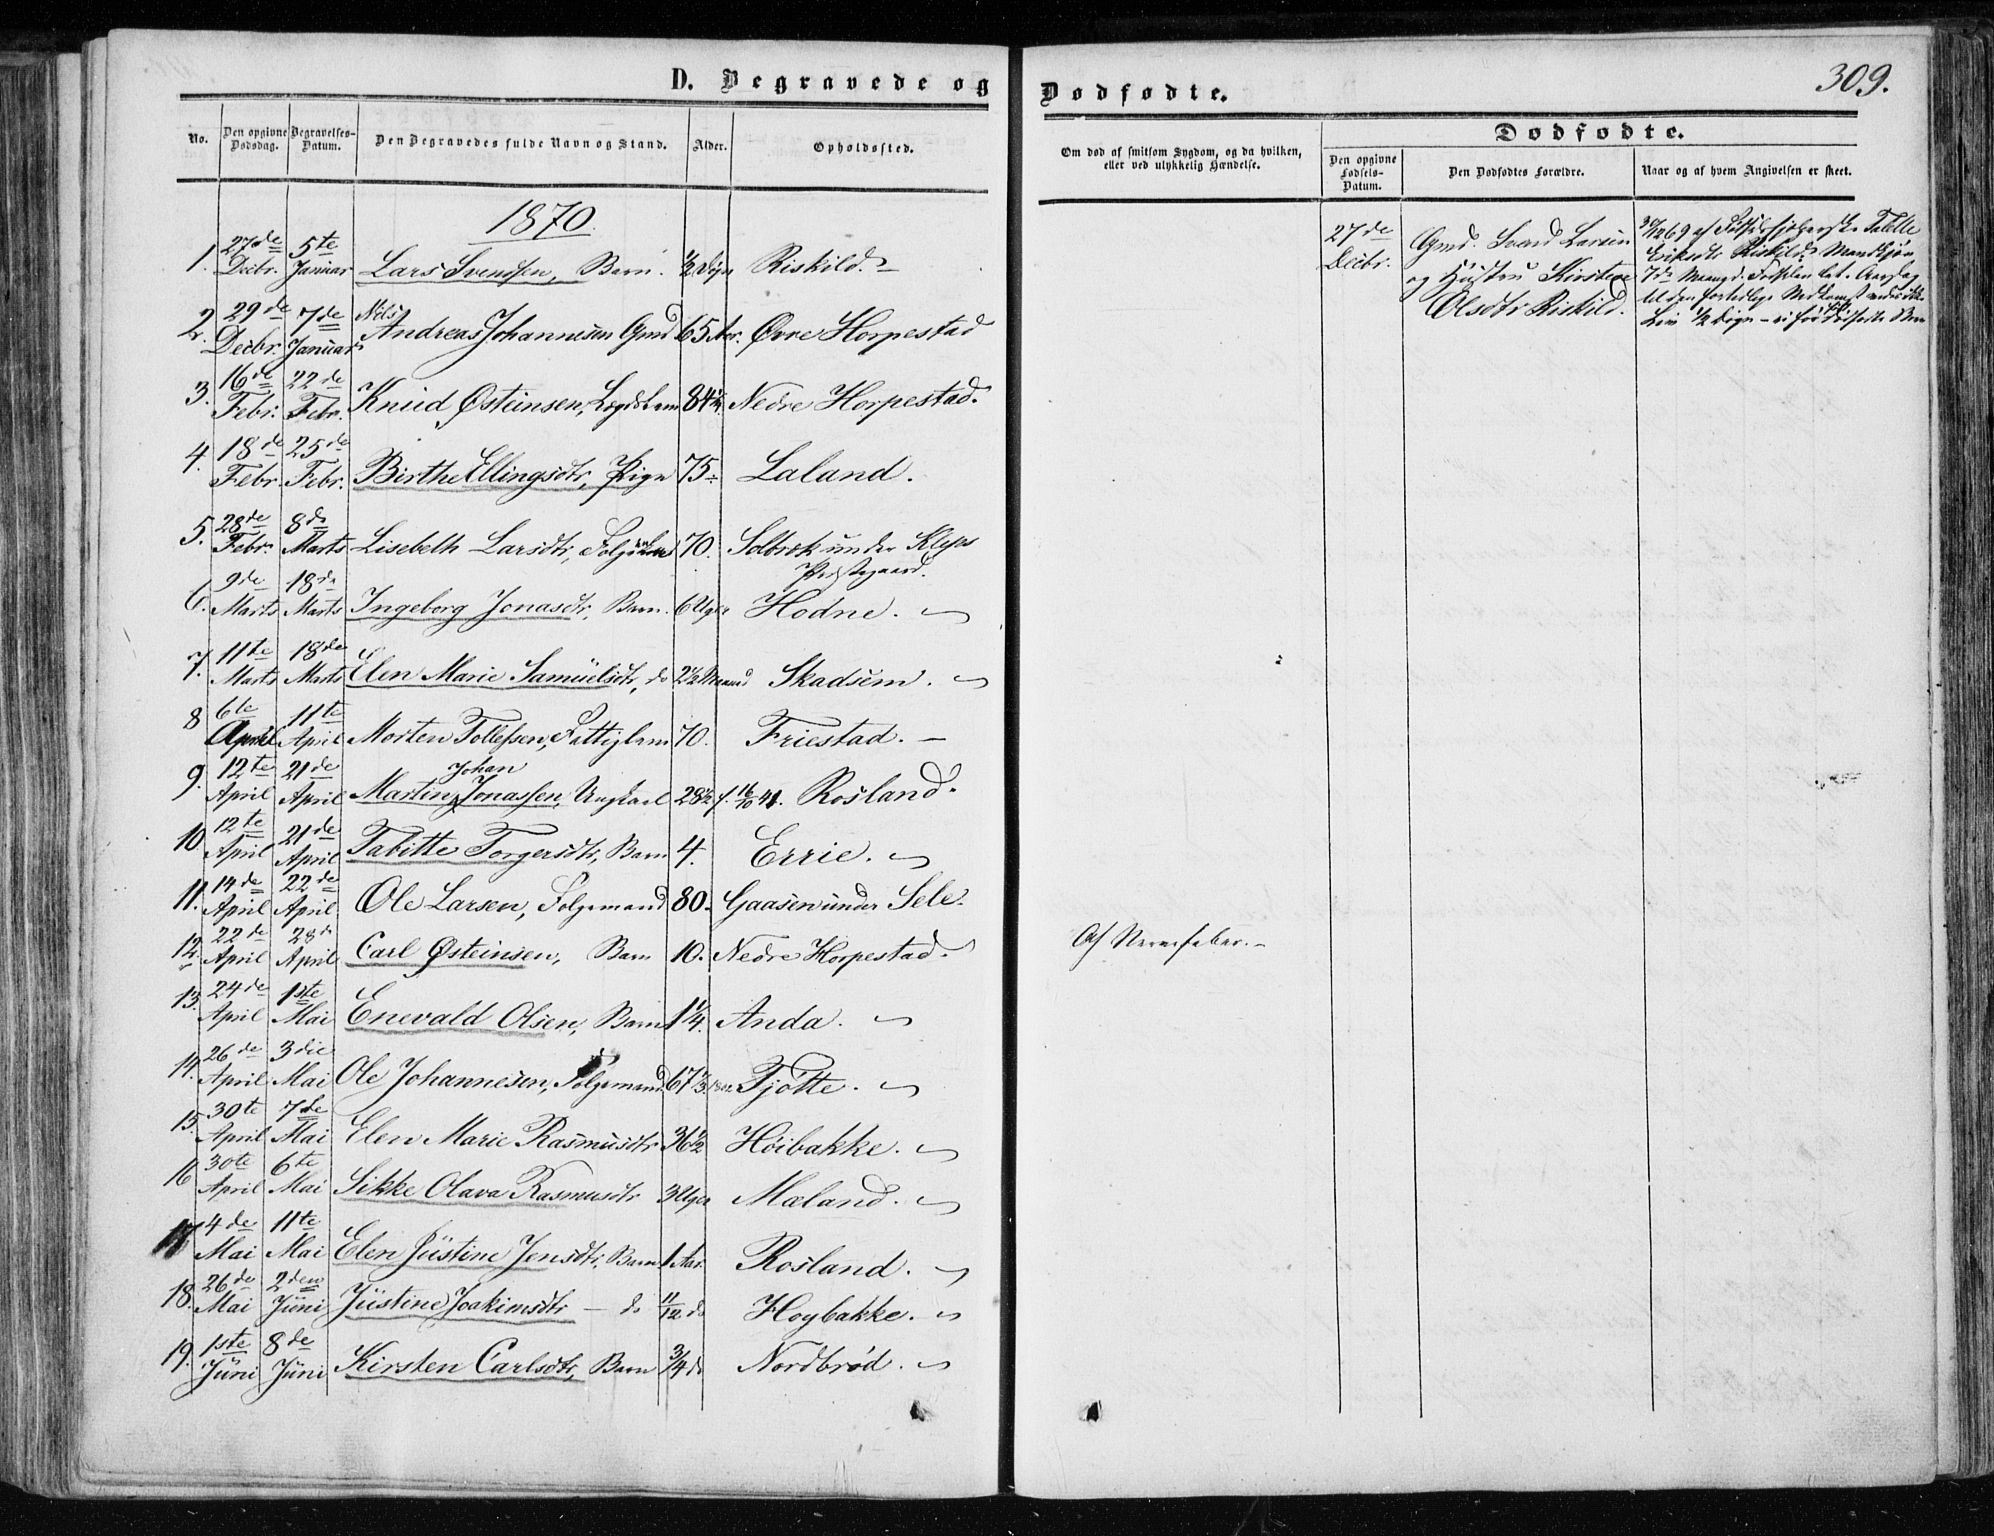 D. Begravede og Dødfødte.
309.
No.
Den opgivne Dødsdag.
Begravelses-Datum.
Den Begravedes fulde Navn og Stand.
Alder.
Opholdssted.
Om død af smitsom Sygdom, og da hvilken, eller ved ulykkelig Hændelse.
Dødfødte.
Den opgivne Fødsels-Datum.
Den Dødfødtes Forældre.
Naar og af hvem Angivelsen er skeet.
1870.
1. 27de Decbr. 5te Januar Lars Svendsen, Barn. ½ Døgn Riskild.
27de Decbr.
Gmd. Svend Larsen
og Hustru Kirstine
Olsdtr Riskild.
2. 29de Decbr. 7de Januar Nils Andreas Johannesen Gmd 65 Aar. Øvre Horpestad
3. 16de Febr. 22de Febr. Knud Østeinsen, Lægdslem 84½ Nedre Horpestad.
4. 18de Febr. 25de Febr. Birthe Ellingsdtr, Pige 75 Laland.
5. 28de Febr. 8de Marts Lisebeth Larsdtr, 70. Solbrok under Kleps
Præstegaard.
6. 9de Marts 18de Marts Ingeborg Jonasdtr, Barn. 6 Uger Hodne.
7. 11te Marts 18de Marts Elen Marie Samüelsdtr, do 2½ Maaned Skadsem.
8 6te April 11te April Morten Tollefsen, Fattiglem 70. Friestad.
9. 12te April 21de April Martin Johan Jonassen, Ungkarl 28½ f. 16/10 41. Rosland.
10. 12te April 21de April Tabitte Torgersdtr, Barn 4. Errie.
11. 14de April 22de April Ole Larsen, Folgemand 80. Gaasen under Sele.
12. 22de April 28de April Carl Østeinsen, Barn 10. Nedre Horpestad.
Af Nervefeber.
13. 24de April 1ste Mai Enevald Olsen, Barn 1¼. Anda.
14. 26de April 3die Mai Ole Johannesen, Folgemand 67 Tjøtte.
15. 30te April 7de Mai Elen Marie Rasmusdtr 36½ Höibakke.
16 30te April 6te Mai Sikke Olava Rasmusdtr 3 Uger Mæland.
17 4de Mai 11te Mai Elen Jüstine Jensdtr, Barn 1 Aar. Rosland.
18. 26de Mai 2den Jüni Jüstine Joakimsdtr — do 11/12 do Hoybakke.
19. 1ste Jüni 8de Jüni Kirsten Carlsdtr, Barn 3/4 do Nordbrød.